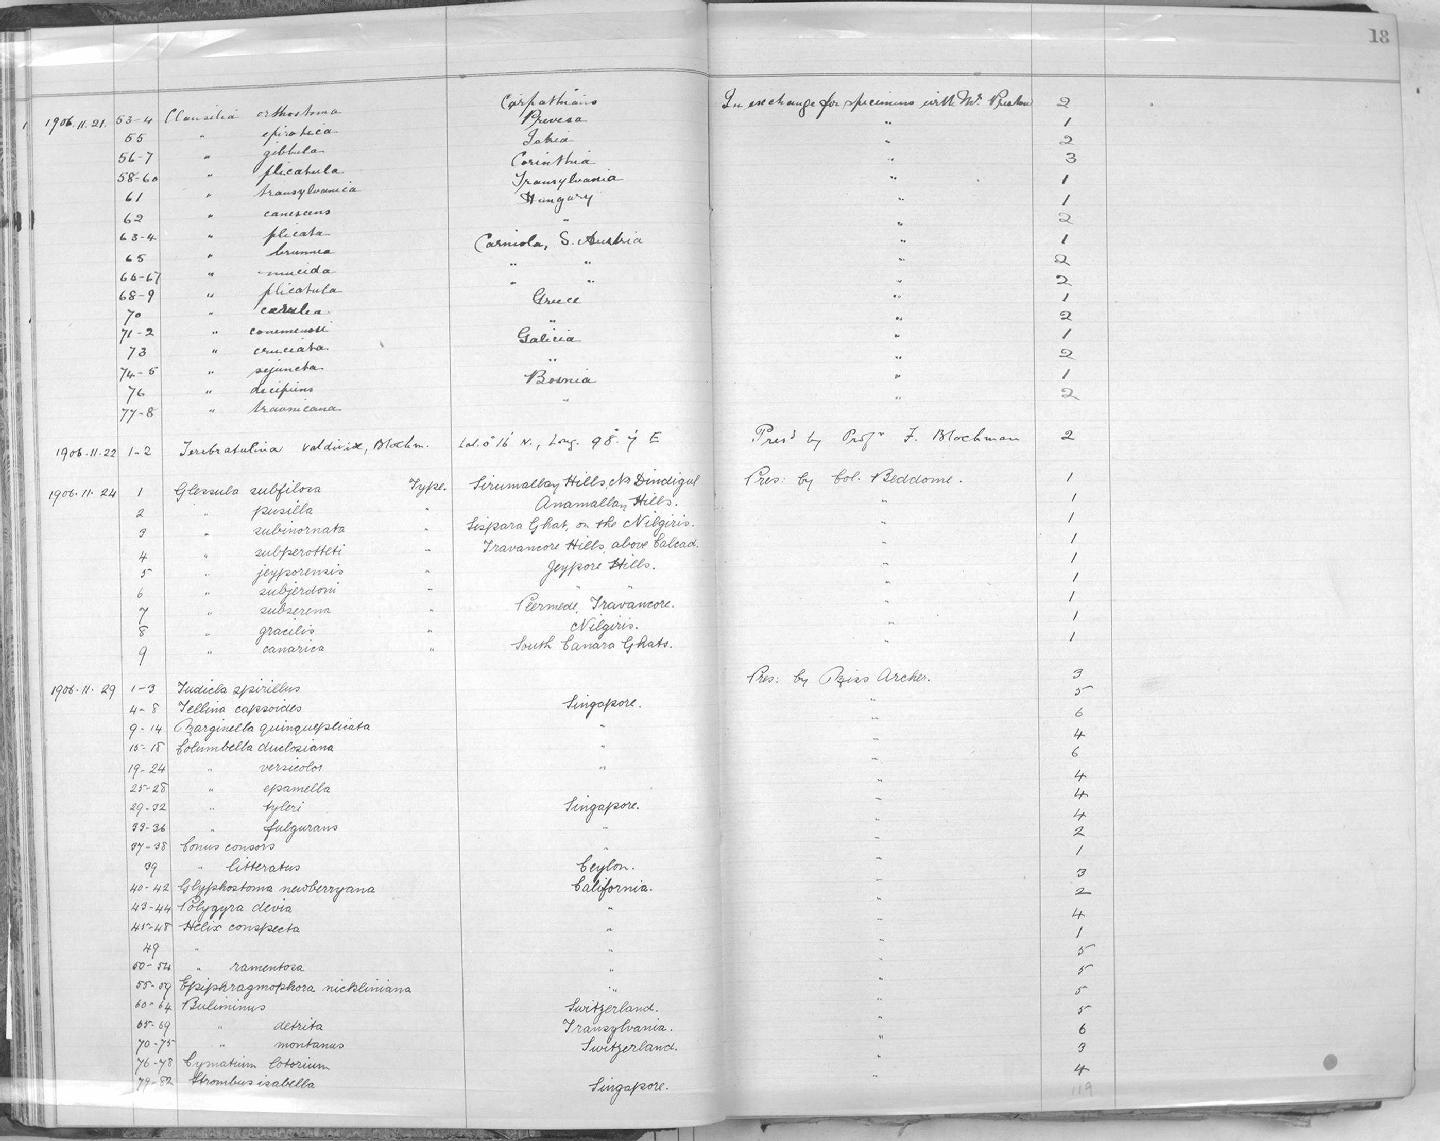 18
1906.11.21. 53-4 Clausilia orthostoma Carpathians In exchange for specimens with Mr. Preston 2
55 " epirotica Prevesa " 1
56-7 " gibbula Istria " 2
58-60 " plicatula Corinthia " 3
61 " transylvanica Transylvania " 1
62 " canescens Hungary " 1
63-4 " plicata " " 2
65 " brunnea Carniola, S. Austria " 1
66-67 " mucida " " " 2
68-9 " plicatula " " " 2
70 " caerulea Greece " 1
71-2 " " " 2
73 " cruciata Galicia " 1
74-5 " sejuncta " " 2
76 " decipiens Bosnia " 1
77-8 " travnicana " " 2
1906.11.22 1-2 Terebratulina valdiviæ, Blochm. Lat. 0° 16' N., Long. 98° 7' E Presd by Profr F. Blochman 2
1906.11.24 1 Glessula subfilosa Type. Sirumallay Hills, Nr Dindigul Pres: by Col. Beddome. 1
2 " pusilla " Anamallay Hills. " 1
3 " subinornata " Sispara Ghat, on the Nilgiris. " 1
4 " subperotteti " Travancore Hills, above Calcad. " 1
5 " jeyporensis " Jeypore Hills. " 1
6 " subjerdoni " " " " 1
7 " subserena " Peermede, Travancore. " 1
8 " gracilis " Nilgiris. " 1
9 " canarica " South Canara Ghats. " 1
1906.11.29 1-3 Tudicla spirillus Pres: by Miss Archer. 3
4-8 Tellina capsoides Singapore. " 5
9-14 Marginella quinqueplicata " " 6
15-18 Columbella duclosiana " " 4
19-24 " versicolor " " 6
25-28 " epamella " 4
29-32 " tyleri Singapore. " 4
33-36 " fulgurans " " 4
37-38 Conus consors " " 2
39 " litteratus Ceylon. " 1
40-42 Glyphostoma newberryana California. " 3
43-44 Polygyra devia " " 2
45-48 Helix conspecta " " 4
49 " " " 1
50-54 " ramentosa " " 5
55-59 Epiphragmophora nickliniana " " 5
60-64 Buliminus Switzerland. " 5
65-69 " detrita Transylvania. " 5
70-75 " montanus Switzerland. " 6
76-78 Cymatium lotorium " 3
79-82 Strombus isabella Singapore. " 4
119